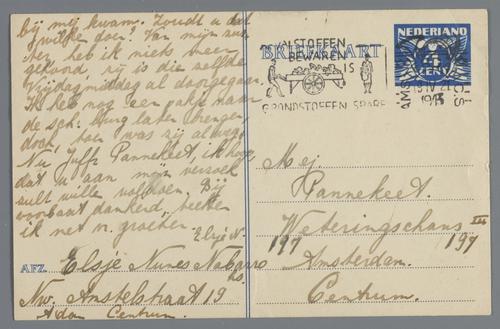 bij mij kwam. Zoudt u dat
willen doen? Van mijn zus-
ter heb ik niets meer
gehoord, zij is die zelfde
Vrijdagmiddag al doorgegaan.
Ik heb nog een pakje naar
de sch. burg laten brengen,
doch, toen was zij al weg.
Nu Juffr. Pannekeet, ik hoop
dat u aan mijn verzoek
zult willen voldoen. Bij
voorbaat dankend, teeken
ik met vr. groeten.
Elsje N.
AFZ. Elsje Nunes Nabarro
Nw. Amstelstraat 19 hs.
A'dam Centrum.
BRIEFKAART
AFVALSTOFFEN
BEWAREN
IS
GRONDSTOFFEN SPAREN
NEDERLAND
4
CENT
AMS
1943
Mej.
Pannekeet.
Weteringschans III
197 197
Amsterdam.
Centrum.